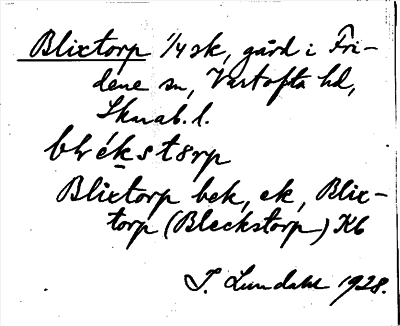 Blixtorp 1/4 sk, gård i Fri-
dene sn, Vartofta hd,
Skarab. l.
blékstørp
Blixtorp bek, ek, Blix-
torp (Bleckstorp) Kb
I. Lundahl 1928.